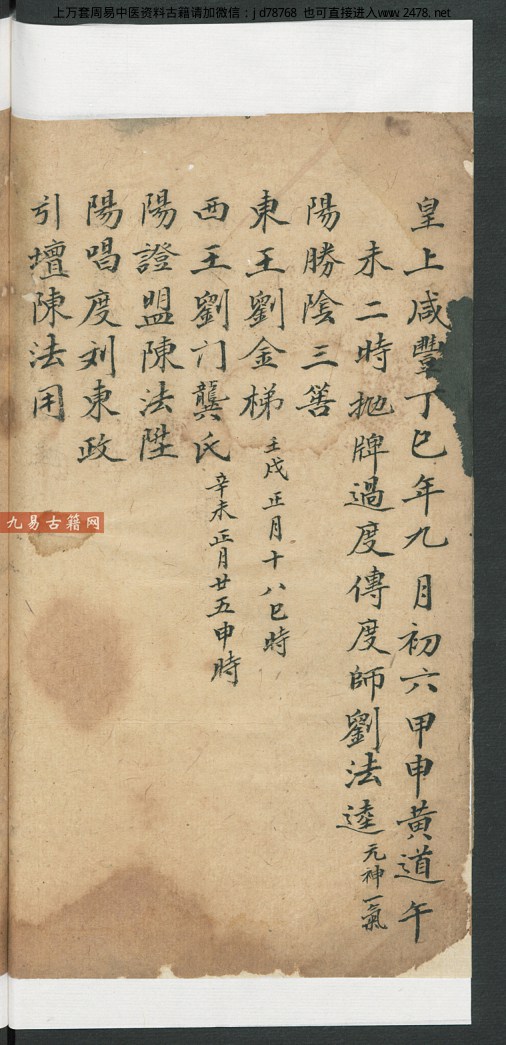 上万套周易中医资料古籍请加微信：jd78768 也可直接进入www.2478.net
皇上咸豐丁巳年九月初六甲申黄道午
未二時抛牌過度傳度師劉法逵元神一氣
陽勝陰三筶
東王劉金梯 壬戌正月十八巳時
西王劉门龔氏 辛未正月廿五申時
陽證盟陳法陞
陽唱度刘東政
引壇陳法用
九易古籍网